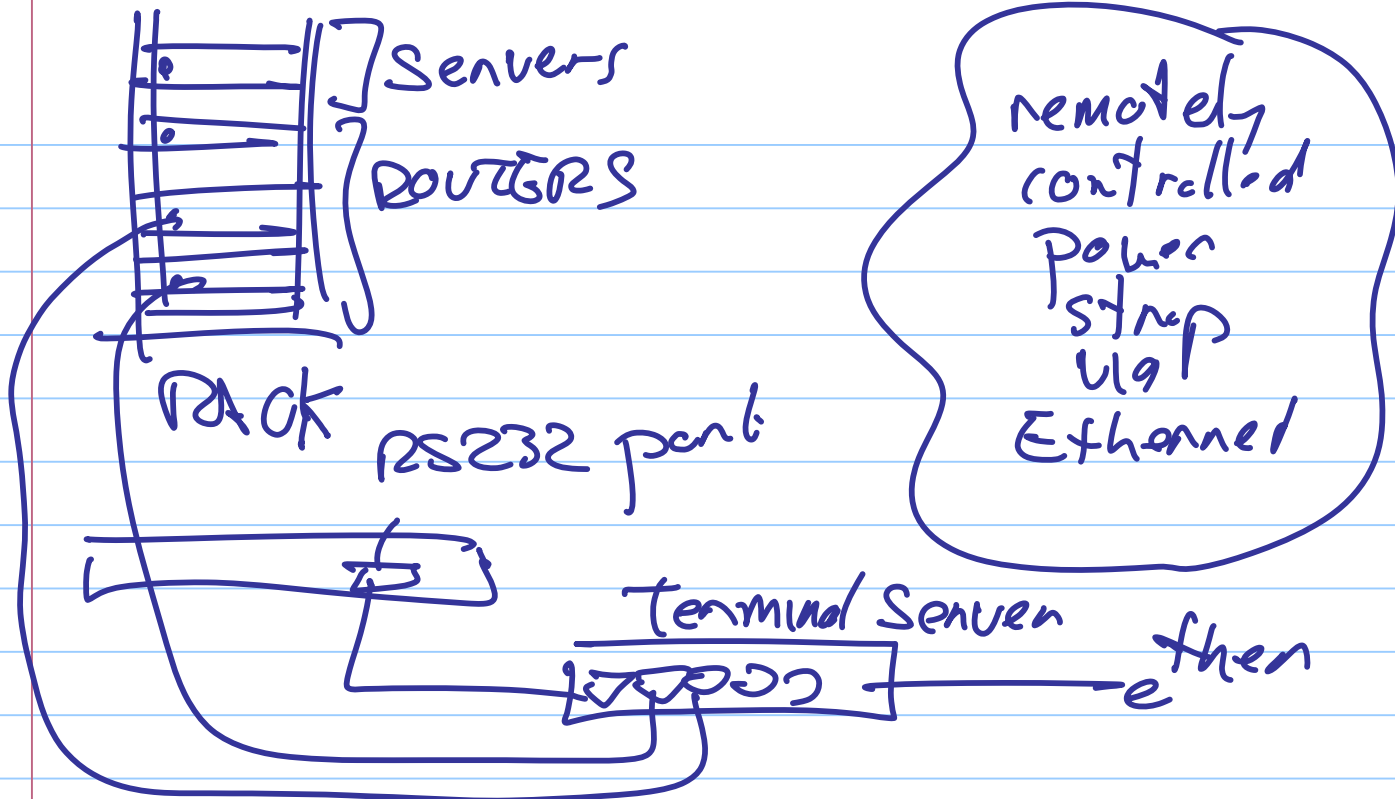 Servers
ROUTERS
RACK
RS232 port
Terminal Server
ether
remotely
controlled
power
strap
via
Ethernet